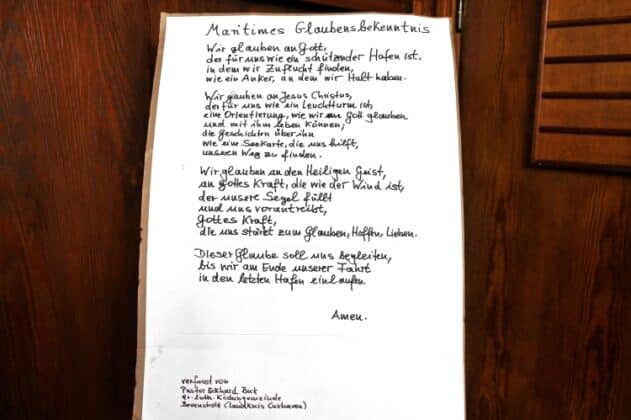 Maritimes Glaubensbekenntnis
Wir glauben an Gott,
der für uns wie ein schützender Hafen ist,
in dem wir Zuflucht finden,
wie ein Anker, an dem wir Halt haben.
Wir glauben an Jesus Christus,
der für uns wie ein Leuchtturm ist,
eine Orientierung, wie wir an Gott glauben
und mit ihm leben können,
die Geschichten über ihn
wie eine Seekarte, die uns hilft,
unseren Weg zu finden.
Wir glauben an den Heiligen Geist,
an Gottes Kraft, die wie der Wind ist,
der unsere Segel füllt
und uns vorantreibt,
Gottes Kraft,
die uns stärkt zum Glauben, Hoffen, Lieben.
Dieser Glaube soll uns begleiten,
bis wir am Ende unserer Fahrt
in den letzten Hafen einlaufen.
Amen.
verfasst von
Pastor Eckhard Bock
ev.-luth. Kirchengemeinde
(Landkreis Cuxhaven)